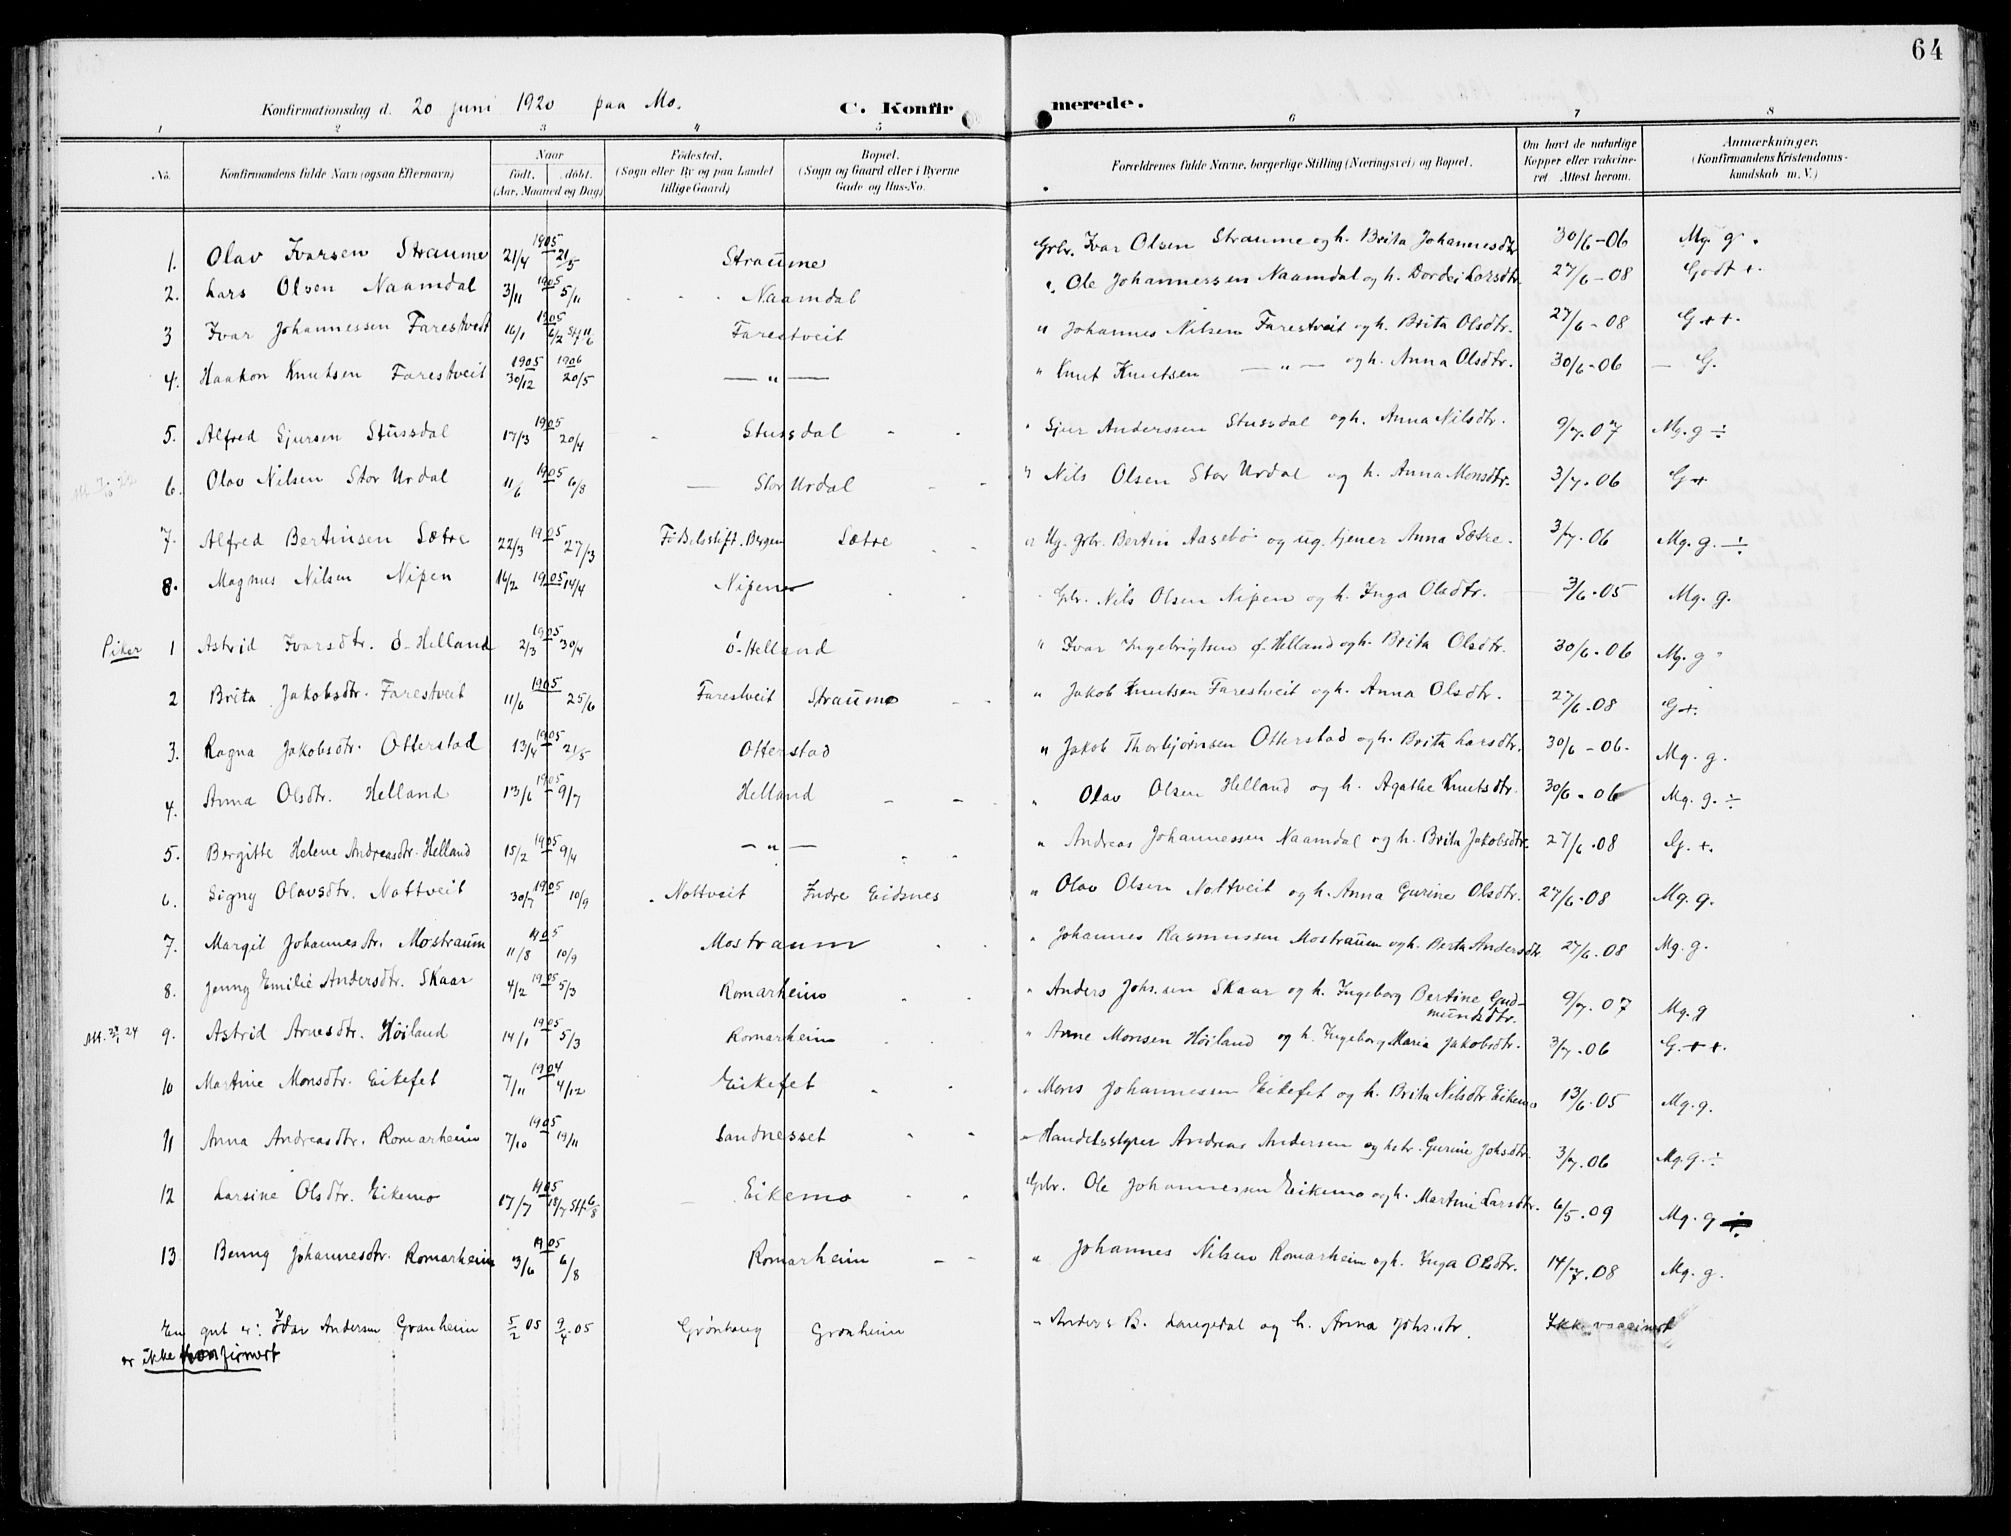 64
Konfirmationsdag d. 20 juni 1920 paa Mo. C. Konfirmerede.
1 2 3 4 5 6 7 8
No. Konfirmandens fulde Navn (ogsaa Efternavn) Naar født. døbt. (Aar, Maaned og Dag) Fødested. (Sogn eller By og paa Landet tillige Gaard) Bopæl. (Sogn og Gaard eller i Byerne Gade og Hus-No. Forældrenes fulde Navne, borgerlige Stilling (Næringsvei) og Bopæl. Om havt de naturlige Kopper eller vakcineret. Attest herom. Anmærkninger, (Konfirmandens Kristendomskundskab m. V.)
1. Olav Ivarsen Straume 21/4 1905 21/5 Straume Grbr. Ivar Olsen Straume og h. Brita Johannesdtr 30/6-06 Mg. g.
2. Lars Olsen Naamdal 3/11 1905 5/11 Naamdal " Ole Johannessen Naamdal og h. Dordei Larsdtr. 27/6-08 Godt +.
3 Ivar Johannessen Farestveit 16/1 1905 6/2 Stf 11/6 Farestveit " Johannes Nilsen Farestveit og h. Brita Olsdtr. 27/6-08 G + +.
4. Haakon Knutsen Farestveit 1905 30/12 1906 20/5 — " — " Knut Knutsen — " — og h. Anna Olsdtr. 30/6-06 — G.
5. Alfred Sjursen Stussdal 17/3 1905 20/4 Stussdal " Sjur Anderssen Stussdal og h. Anna Nilsdtr. 9/7.07 Mg. g ÷
6. Olav Nilsen Stor Urdal 11/6 1905 6/8 — Stor Urdal " Nils Olsen Stor Urdal og h. Anna Monsdtr. 3/7.06 G +
7. Alfred Bertinsen Sætre 22/3 1905 27/3 Fødselsstift. Bergen Sætre " Ug. grbr. Bertin Aasebø og ug. tjener Anna Sætre. 3/7.06 Mg. g. ÷
8. Magnus Nilsen Nipen 16/2 1905 14/4 Nipen Gbr. Nils Olsen Nipen og h. Inga Olsdtr. 3/6.05 Mg. g.
Piker 1 Astrid Ivarsdtr. Ø-Helland 2/3 1905 30/4 Ø-Helland " Ivar Ingebrigtsen Ø-Helland og h. Brita Olsdtr. 30/6.06 Mg. g
2 Brita Jakobsdtr. Farestveit 11/6 1905 25/6 Farestveit Straume " Jakob Knutsen Farestveit og h. Anna Olsdtr. 27/6.08 G+.
3. Ragna Jakobsdtr. Otterstad 13/4 1905 21/5 Otterstad " Jakob Thorbjørnsen Otterstad og h. Brita Larsdtr. 30/6-06. Mg. g.
4. Anna Olsdtr. Helland 13/6 1905 9/7 Helland " Olav Olsen Helland og h. Agathe Knutsdtr. 30/6.06 Mg. g. ÷
5. Bergitte Helene Andreasdtr. Helland 15/2 1905 9/4 — " — " Andreas Johannessen Naamdal og h. Brita Jakobsdtr. 27/6.08 G. +.
6. Signy Olavsdtr. Nottveit 30/7 1905 10/9 Nottveit Indre Eidsnes " Olav Olsen Nottveit og h. Anna Gurine Olsdtr. 27/6.08 Mg. g.
7. Margit Johannesdtr. Mostraum 11/8 1905 10/9 Mostraum " Johannes Rasmussen Mostraum og h. Berta Andersdtr 27/6.08 Mg. g.
8. Jenny Emilie Andersdtr. Skaar 4/2 1905 5/3 Romarheim " Anders Johs.sen Skaar og h. Ingeborg Bertine Gudmundsdtr. 9/7.07 Mg. g
9. Astrid Arnesdtr. Høiland 14/1 1905 5/3 Romarheim " Arne Monsen Høiland og h. Ingeborg Maria Jakobsdtr. 3/7.06 G. + +.
10 Martine Monsdtr. Eikefet 7/11 1904 4/12 Eikefet " Mons Johannessen Eikefet og h. Brita Nilsdtr Eikemo 13/6.05 Mg. g.
11 Anna Andreasdtr. Romarheim 7/10 1905 19/11 Sandnesset " Handelsstyrer Andreas Andersen og hstr. Gurine Johsdtr. 3/7.06 Mg. g. ÷
12 Larsine Olsdtr. Eikemo 17/7 1905 18/7 Stf. 6/8 — Eikemo Gbr. Ole Johannessen Eikemo og h. Martine Larsdtr. 6/5.09 Mg. g ÷
13 Benny Johannesdtr. Romarheim 3/6 1905 6/8 Romarheim " Johannes Nilsen Romarheim og h. Inga Olsdtr. 14/7.08 Mg. g.
En gut er: Idar Andersen Granheim 5/2 05 9/4.05 Grønhaug Granheim " Anders B. Langedal og h. Anna Johs.dtr. Ikke vaccinert
er ikke konfirmert